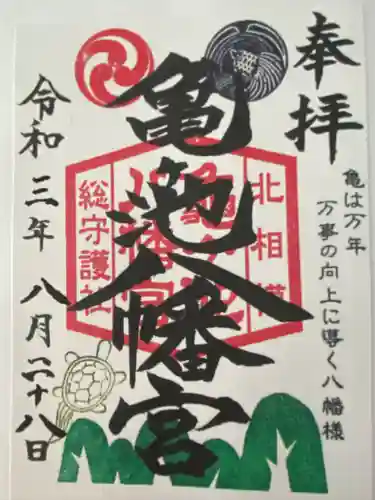 奉拝
亀は万年
万事の向上に導く八幡様
北相模
亀ヶ池
八幡宮
総守護社
亀池八幡宮
令和三年八月二十八日